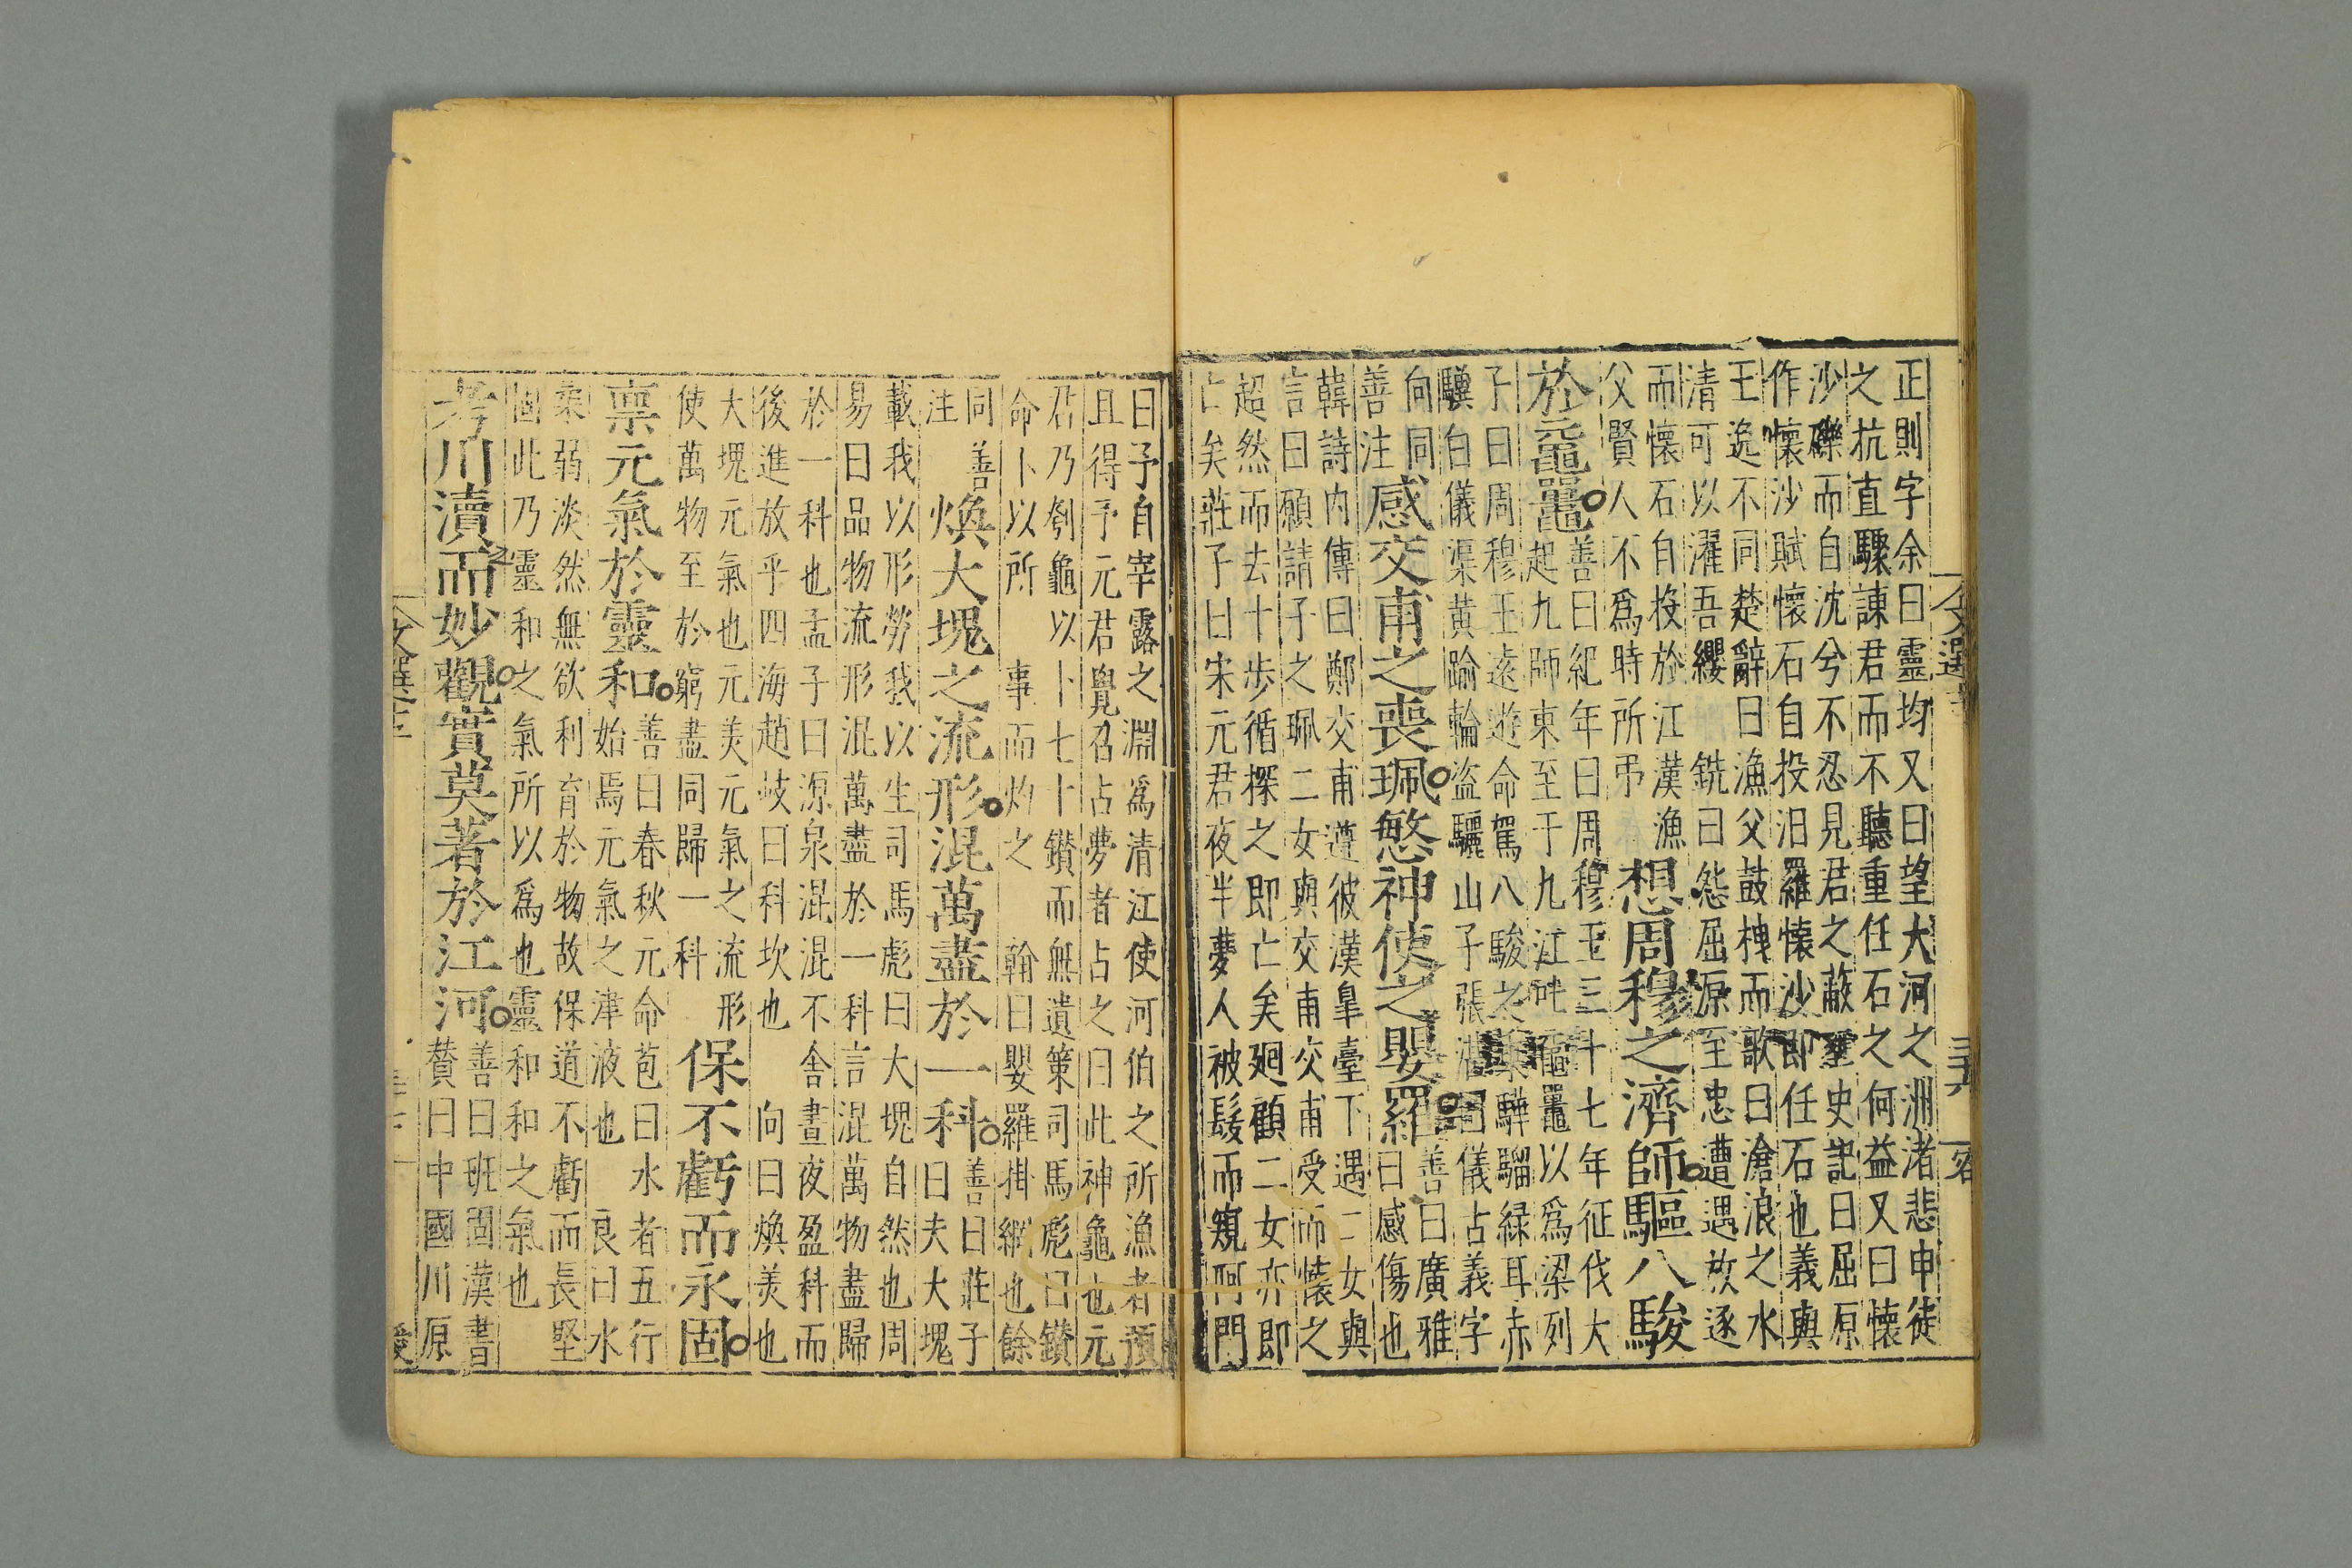 正則字余曰靈均又曰望大河之洲渚悲申徒
之抗直驟諫君而不聽重任石之何益又曰懷
沙礫而自沈兮不忍見君之蔽壅史記曰屈原
作懷沙賦懷石自投汨羅懷沙即任石也義與
王逸不同楚辭曰漁父鼓枻而歌曰滄浪之水
清可以濯吾纓 銑曰怨屈源至忠遭遇放逐
而懷石自投於江漢漁
父賢人不爲時所弔
想周穆之濟師驅八駿
於黿鼉
善曰紀年曰周穆王三十七年征伐大
起九師東至于九江叱黿鼉以爲梁列
子曰周穆王遠遊命駕八駿之乘驊騮緑耳赤
驥白儀渠黄踰輪盗驪山子張湛曰儀古義字
向同
善注
感交甫之喪珮愍神使之嬰羅
善曰廣雅
曰感傷也
韓詩内傳曰鄭交甫遵彼漢臯臺下遇二女與
言曰願請子之珮二女與交甫交甫受而懷之
超然而去十步循探之即亡矣廻顧二女亦即
亡矣莊子曰宋元君夜半夢人被髮而窺阿門
曰予自宰露之淵爲清江使河伯之所漁者預
且得予元君覺召占夢者占之曰此神龜也元
君乃刳龜以卜七十鑚而無遺策司馬彪曰鑚
命卜以所 事而灼之 翰曰嬰羅掛網也餘
同善
注
煥大塊之流形混萬盡於一科
善曰莊子
曰夫大塊
載我以形勞我以生司馬彪曰大塊自然也周
易曰品物流形混萬盡於一科言混萬物盡歸
於一科也孟子曰源泉混混不舍晝夜盈科而
後進放乎四海趙岐曰科坎也 向曰煥美也
大塊元氣也元美元氣之流形
使萬物至於窮盡同歸一科
保不虧而永固
禀元氣於靈和
善曰春秋元命苞曰水者五行
始焉元氣之津液也 良曰水
柔弱淡然無欲利育於物故保道不虧而長堅
固此乃靈和之氣所以爲也靈和和之氣也
考川瀆而妙觀實莫著於江河
善曰班固漢書
贊曰中國川原